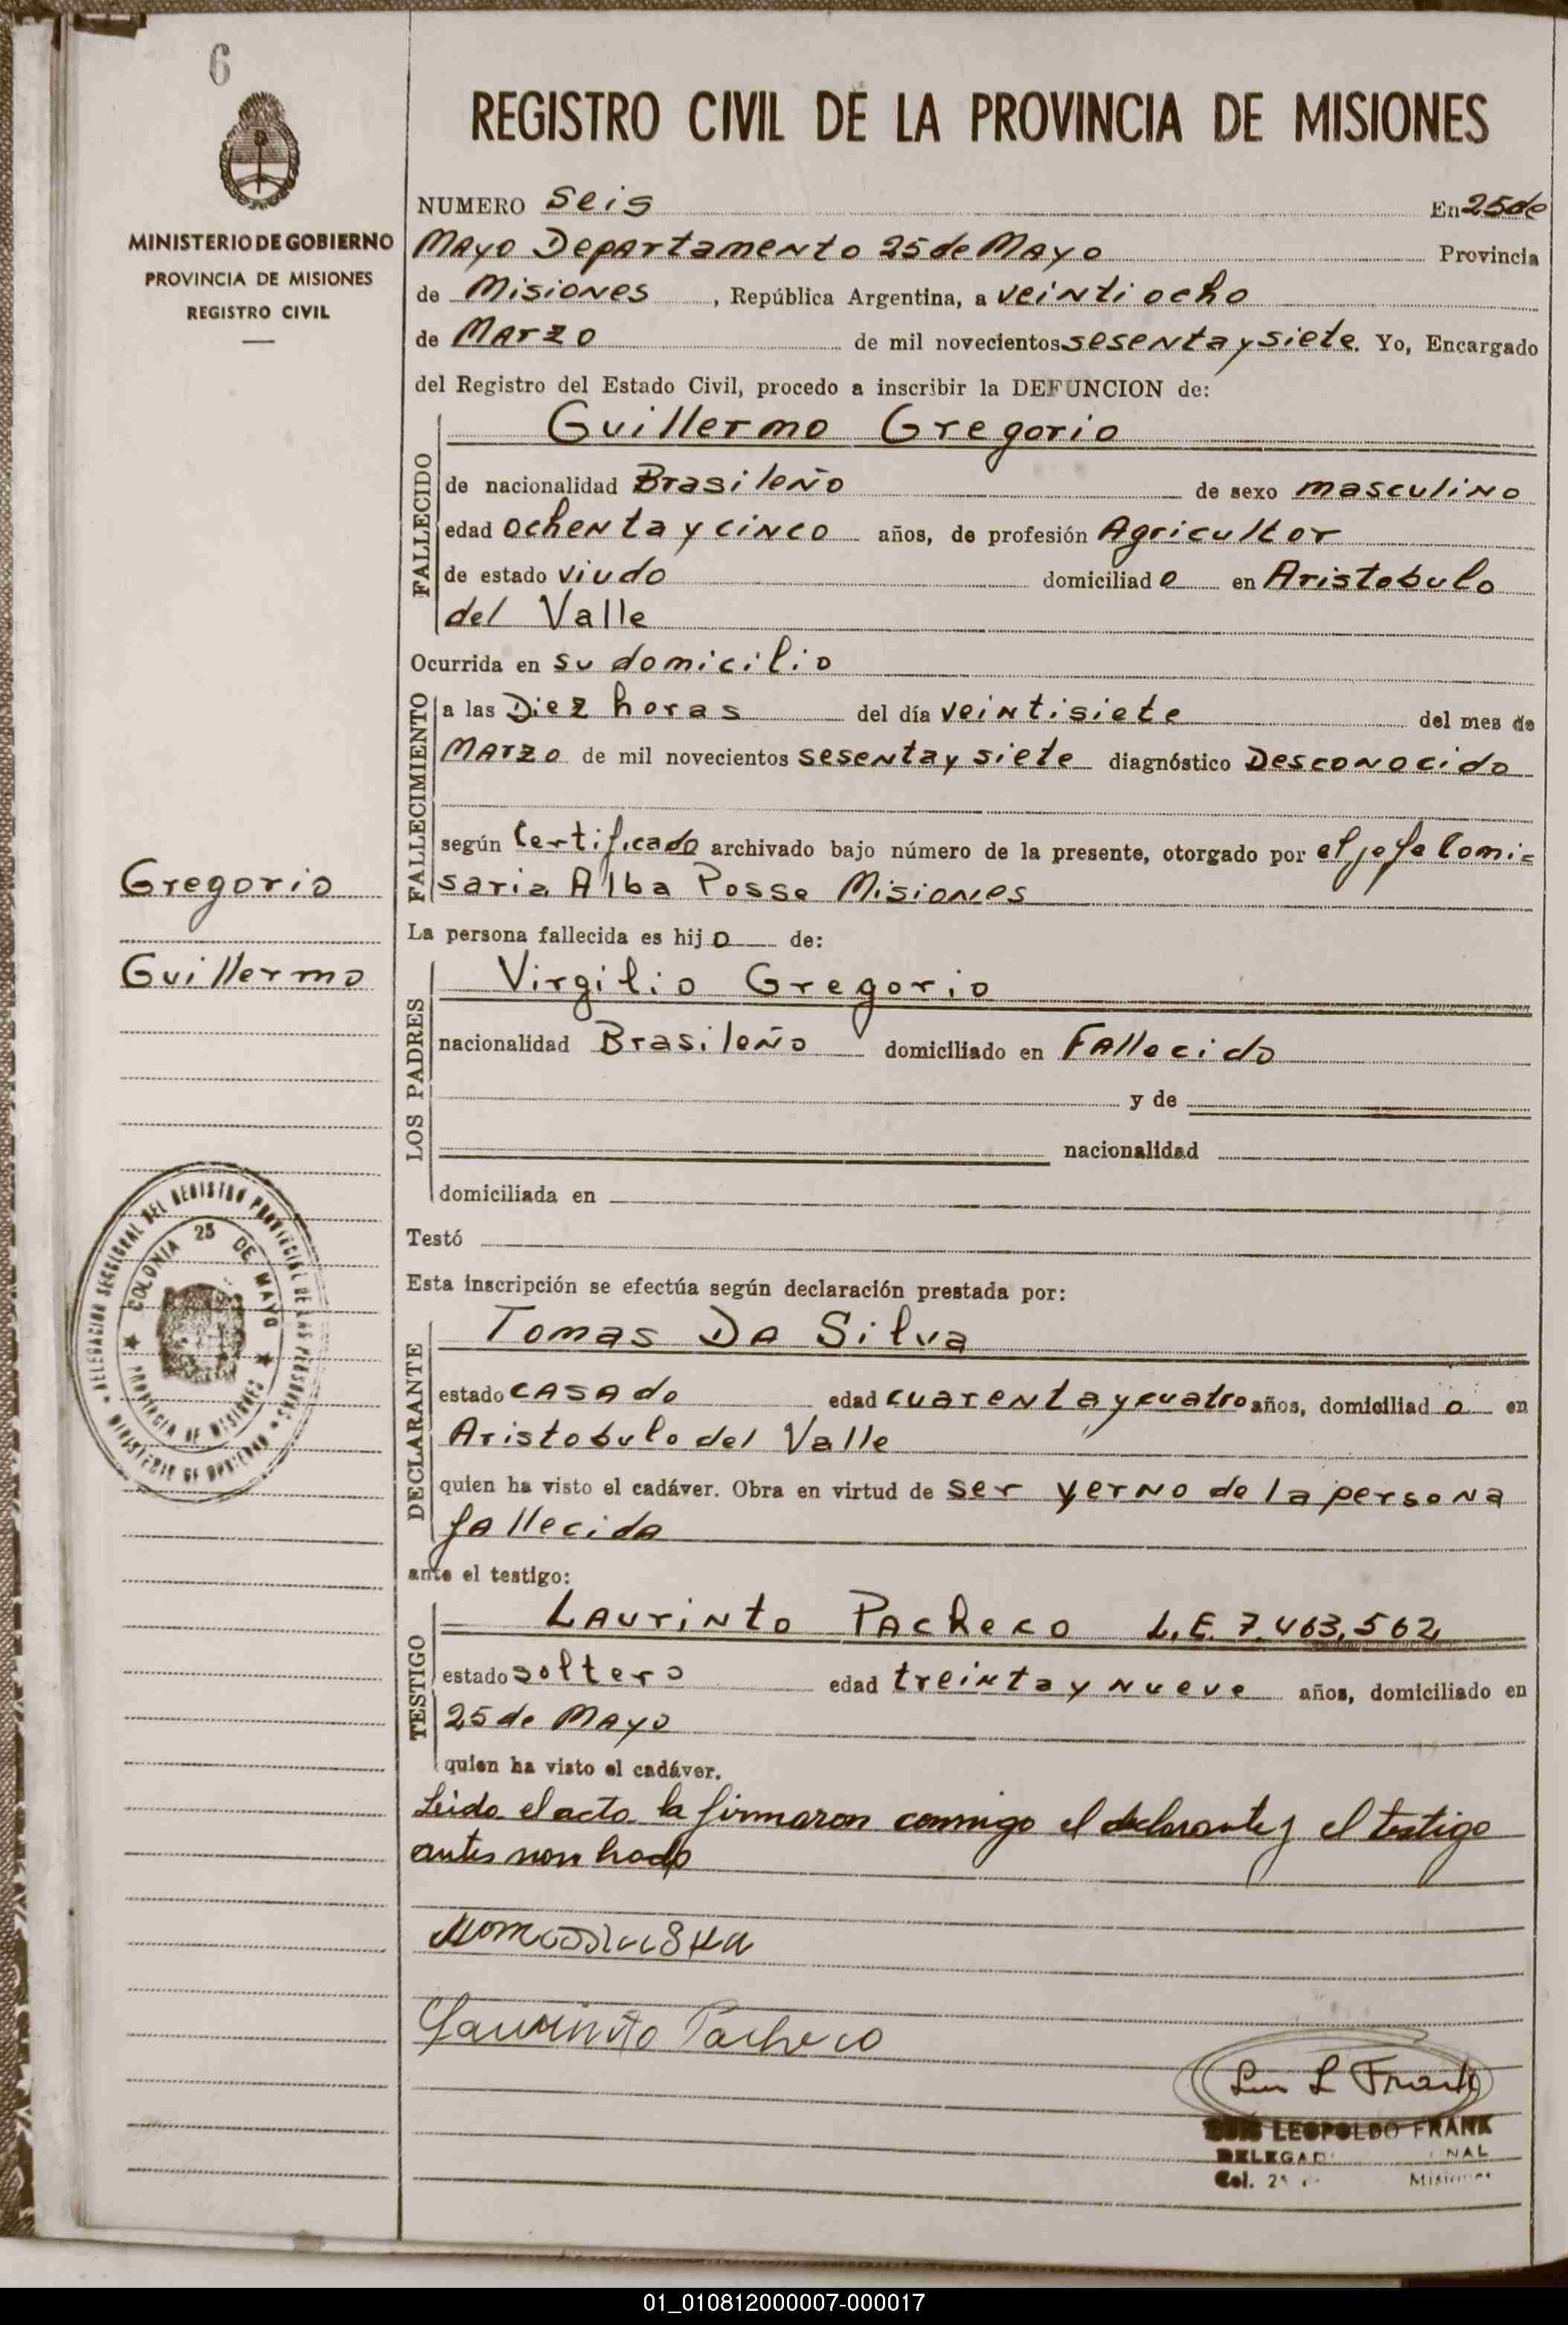 6
MINISTERIO DE GOBIERNO
PROVINCIA DE MISIONES
REGISTRO CIVIL
REGISTRO CIVIL DE LA PROVINCIA DE MISIONES
NUMERO Seis En 25 de
Mayo Departamento 25 de Mayo Provincia
de Misiones, República Argentina, a veintiocho
de Marzo de mil novecientos sesenta y siete. Yo, Encargado
del Registro del Estado Civil, procedo a inscribir la DEFUNCION de:
FALLECIDO
Guillermo Gregorio
de nacionalidad Brasileño de sexo masculino
edad ochenta y cinco años, de profesión Agricultor
de estado viudo domiciliado en Aristobulo
del Valle
Ocurrida en su domicilio
FALLECIMIENTO
a las Diez horas del día veintisiete del mes de
Marzo de mil novecientos sesenta y siete diagnóstico Desconocido
según Certificado archivado bajo número de la presente, otorgado por el jefe Comi=
saria Alba Posse Misiones
Gregorio
Guillermo
La persona fallecida es hijo de:
LOS PADRES
Virgilio Gregorio
nacionalidad Brasileño domiciliado en Fallecido
y de
nacionalidad
domiciliada en
Testó
Esta inscripción se efectúa según declaración prestada por:
DECLARANTE
Tomas Da Silva
estado casado edad cuarenta y cuatro años, domiciliado en
Aristobulo del Valle
quien ha visto el cadáver. Obra en virtud de ser yerno de la persona
fallecida
ante el testigo:
TESTIGO
Laurinto Pacheco L.E. 7.463,562,
estado soltero edad treinta y nueve años, domiciliado en
25 de Mayo
quien ha visto el cadáver.
Leido el acta la firmaron conmigo el declarante y el testigo
antes nombrado
Laurinto Pacheco
DELEGACION SECCIONAL DEL REGISTRO PROVINCIAL DE LAS PERSONAS
MINISTERIO DE GOBIERNO
COLONIA 25 DE MAYO
PROVINCIA DE MISIONES
Luis L Frank
LUIS LEOPOLDO FRANK
Col. Misiones
01_010812000007-000017